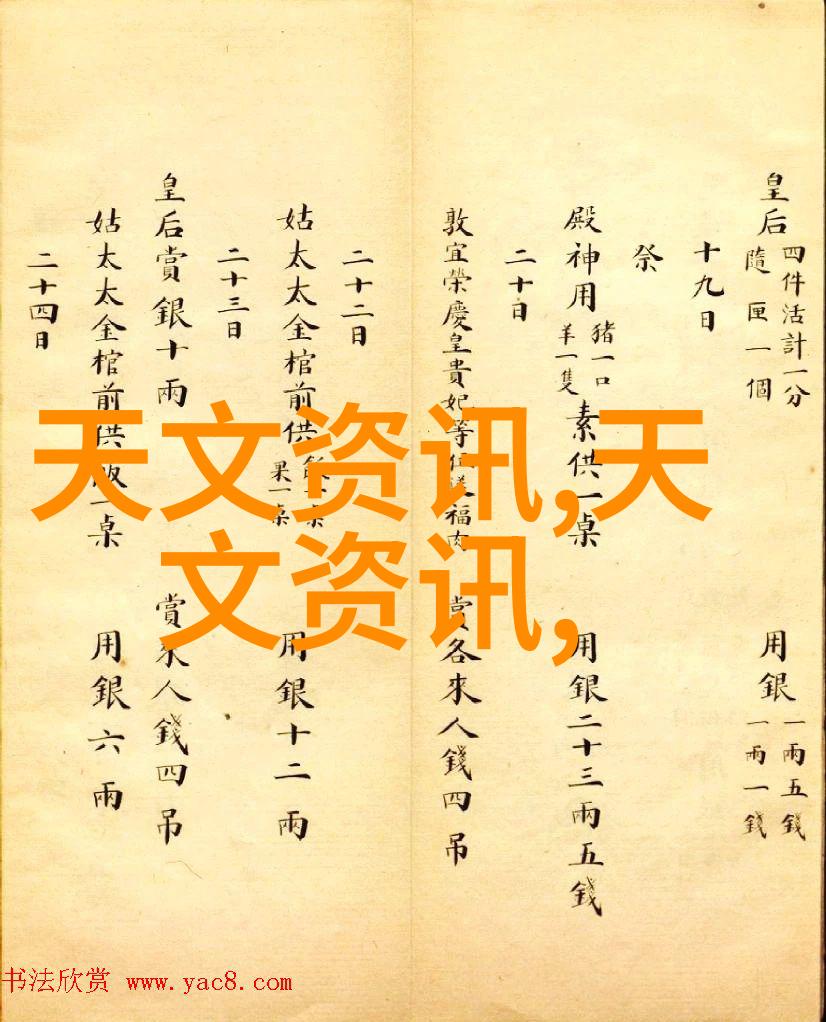 皇后 四件活計一分 用銀 一兩五錢
隨匣一個 一兩一錢
十九日
祭
殿神用 豬一口 素供一桌 用銀二十三兩五錢
羊一隻
二十日
敦宜榮慶皇貴妃等位送福肉 賞各來人錢四吊
二十二日
姑太太金棺前供 飯一桌 用銀十二兩
果一桌
二十三日
皇后賞銀十兩 賞來人錢四吊
姑太太金棺前供飯一桌 用銀六兩
二十四日
天文资讯,天
文资讯,
书法欣赏 www.yac8.com